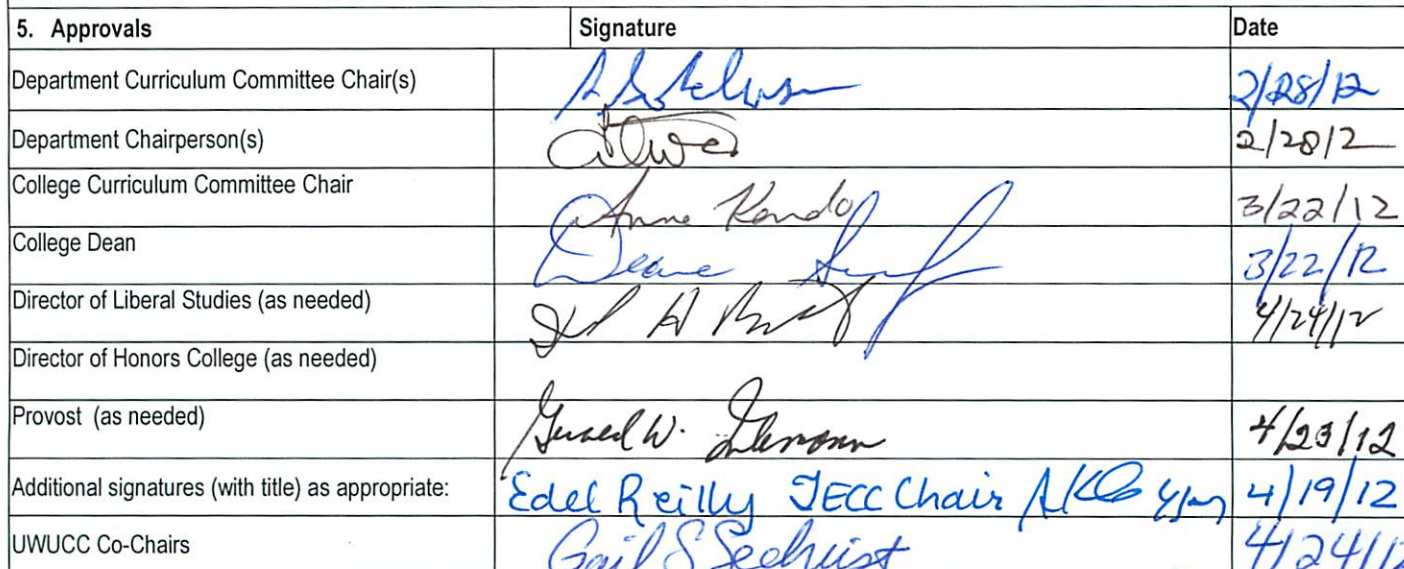 5. Approvals Signature Date
Department Curriculum Committee Chair(s) 2/28/12
Department Chairperson(s) 2/28/12
College Curriculum Committee Chair Anne Kondo 3/22/12
College Dean Deane 3/22/12
Director of Liberal Studies (as needed) 4/24/12
Director of Honors College (as needed)
Provost (as needed) Gerald W. 4/23/12
Additional signatures (with title) as appropriate: Edel Reilly TECC Chair 4/19/12
UWUCC Co-Chairs Gail S Sechrist 4/24/12